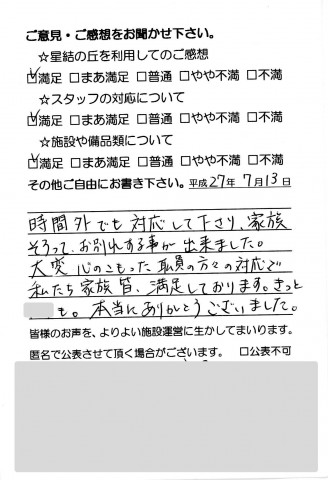 ご意見・ご感想をお聞かせ下さい。
☆星結の丘を利用してのご感想
☑満足 □まあ満足 □普通 □やや不満 □不満
☆スタッフの対応について
☑満足 □まあ満足 □普通 □やや不満 □不満
☆施設や備品類について
☑満足 □まあ満足 □普通 □やや不満 □不満
その他ご自由にお書き下さい。平成27年 7月13日
時間外でも対応して下さり、家族
そろってお別れする事が出来ました。
大変心のこもった職員の方々の対応で
私たち家族皆、満足しております。きっと
も。本当にありがとうございました。
皆様のお声を、よりよい施設運営に生かしてまいります。
匿名で公表させて頂く場合がございます。 □公表不可